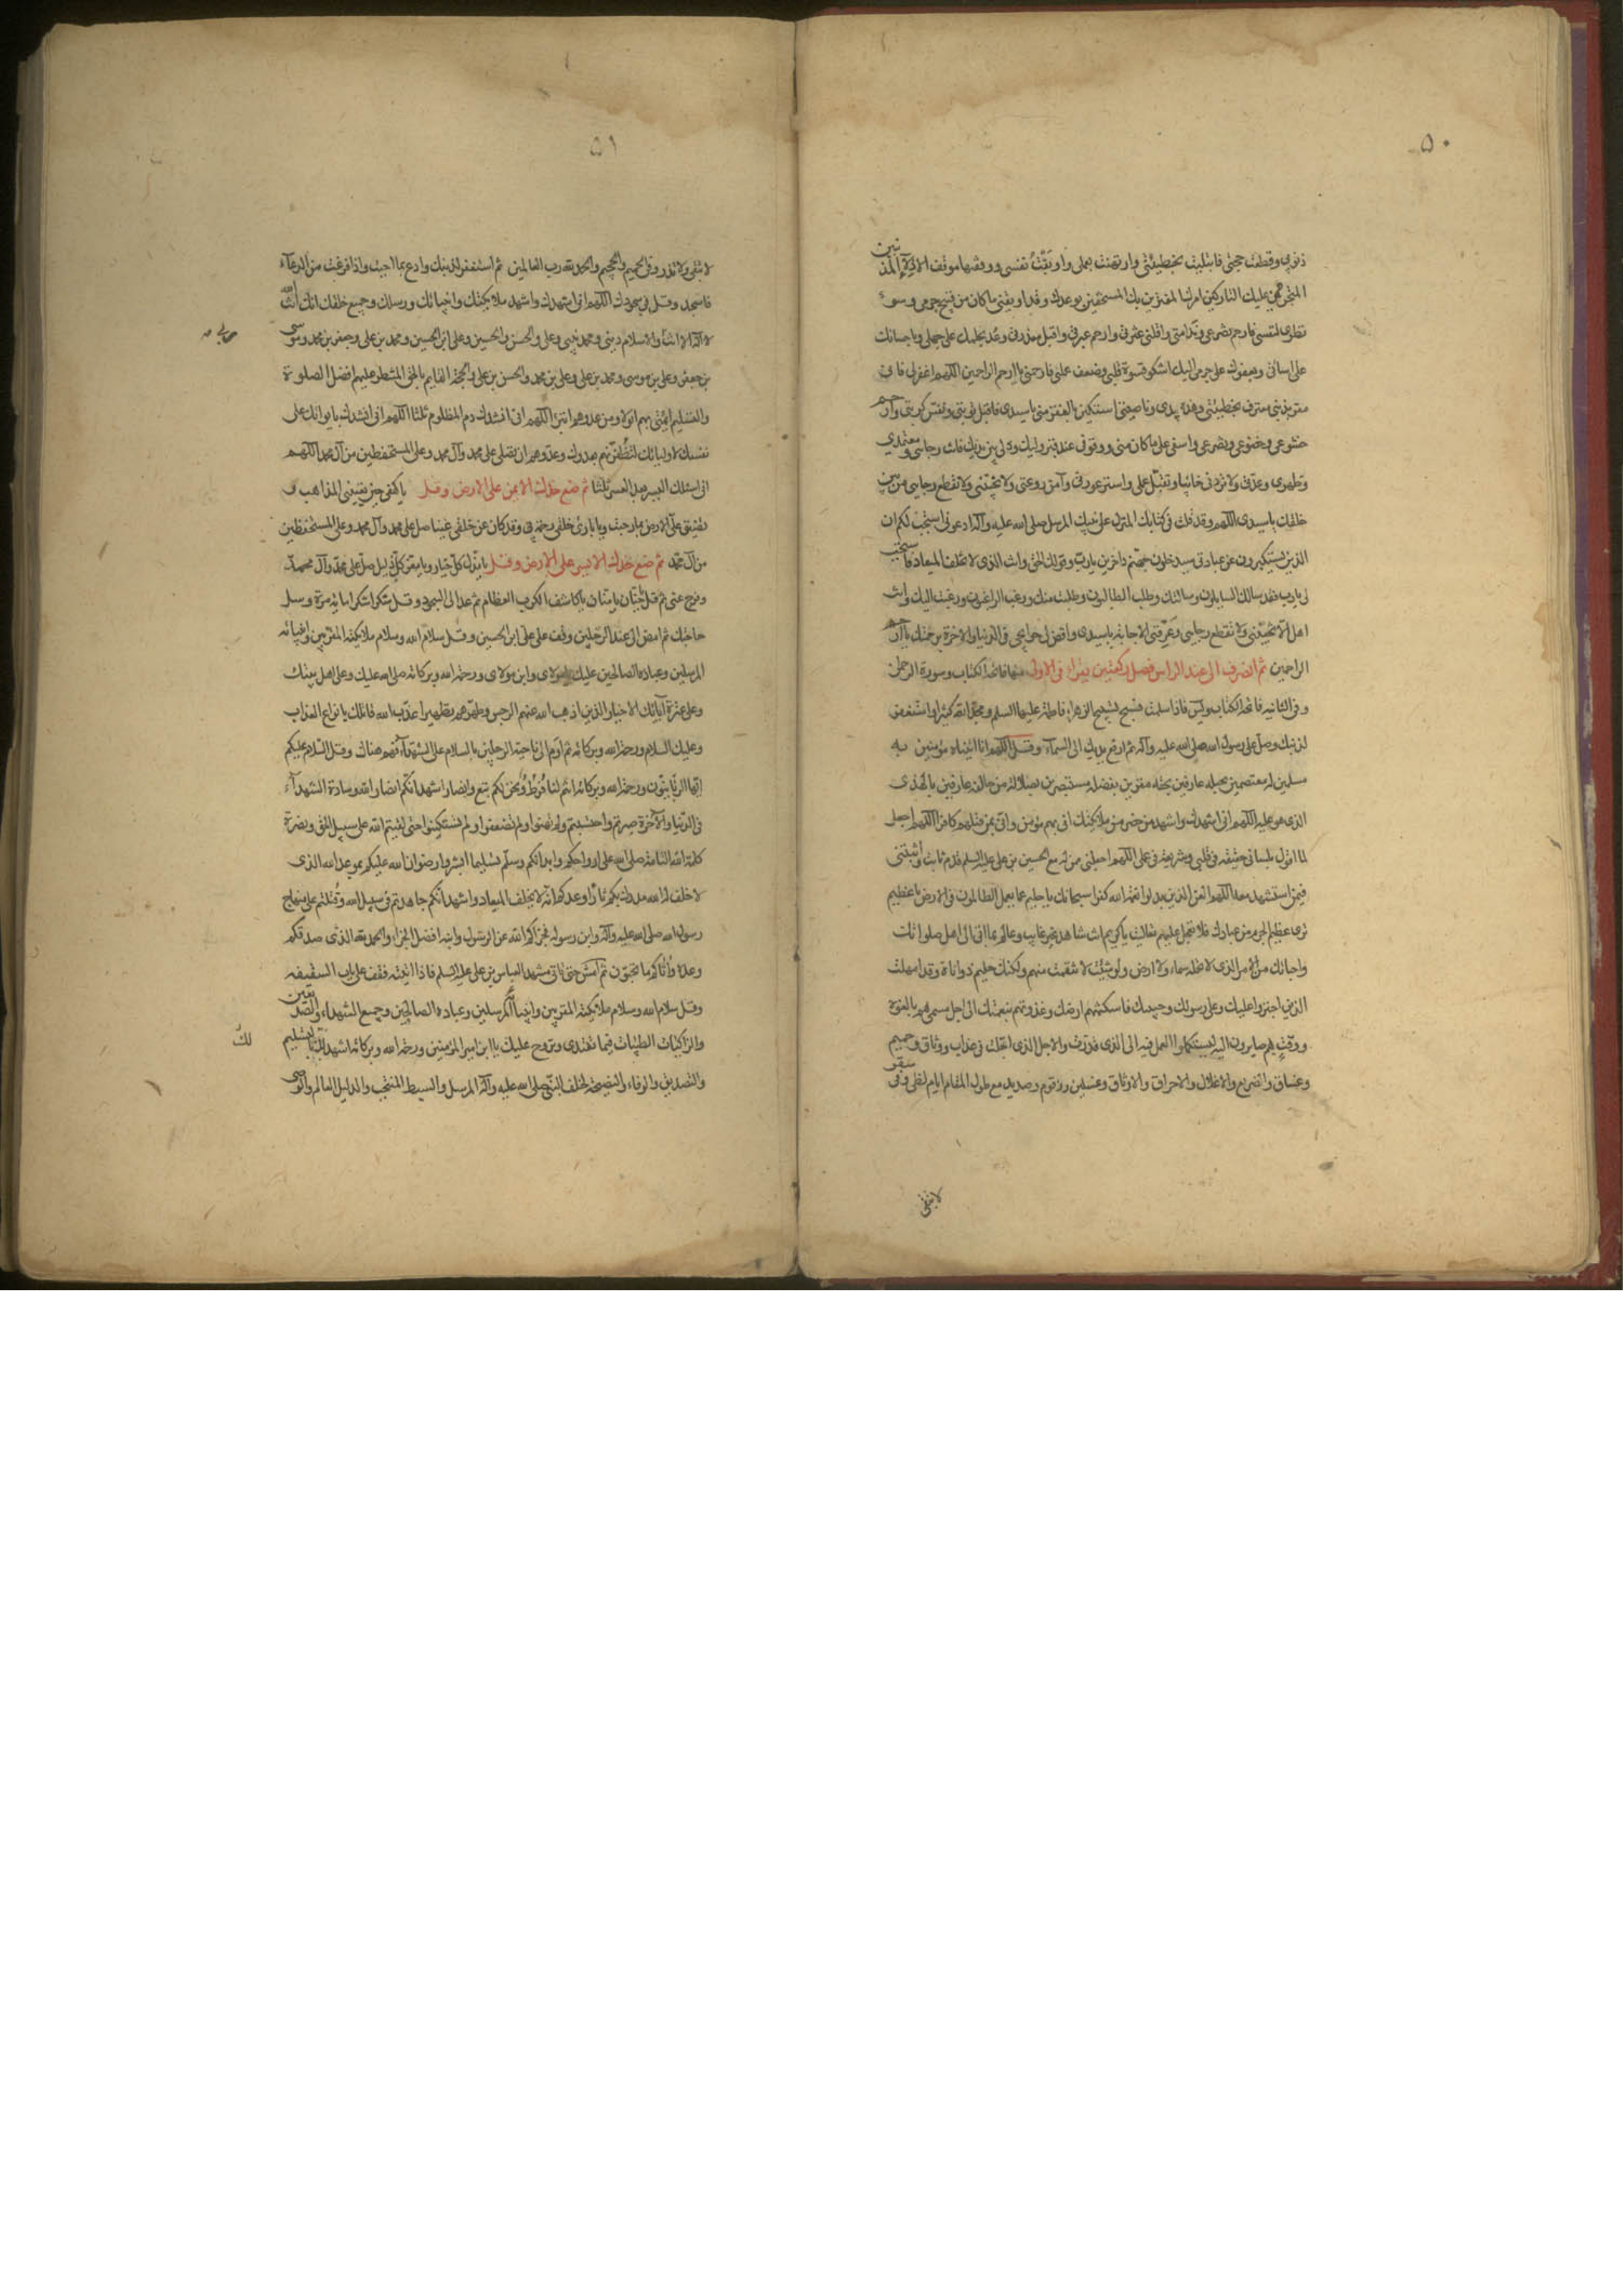 ٥٠
ذنوبي وقطعت حجتي فابتليت بخطيئتي وارتهنت بعملي واوبقت نفسي ووقفتها موقف الاذلاء المذنبين
المتجرمين عليك التاركين امرك المغترين بك المستخفين بوعدك وقد اوبقني ماكان من قبيح جرمي وسوء
نظري لنفسي فارحم تضرعي وندامتي واقلني عثرتي وارحم عبرتي واقبل معذرتي وعد بحلمك على جهلي وباحسانك
على اسائتي وبعفوك على جرمي اليك اشكو قسوة قلبي وضعف عملي فارحمني يا ارحم الراحمين اللهم اغفر لي فاني
مقر بذنبي معترف بخطيئتي وهذه يدي وناصيتي استكين بالفقر مني يا سيدي فاقبل توبتي ونفس كربتي وارحم
خشوعي وخضوعي وتضرعي واسفي على ماكان مني ووقوفي عند قبر وليك وذلي بين يديك فانت رجائي ومعتمدي
وظهري وعدتي ولا تردني خائبا وتقبل عملي واستر عورتي وآمن روعتي ولا تخيبني ولا تقطع رجائي من بين
خلقك يا سيدي اللهم وقد قلت في كتابك المنزل على نبيك المرسل صلى الله عليه وآله ادعوني استجب لكم ان
الذين يستكبرون عن عبادتي سيدخلون جهنم داخرين يا رب وقولك الحق وانت الذي لا تخلف الميعاد فاستجب
لي يا رب فقد سالك السايلون وسالتك وطلب الطالبون وطلبت منك ورغب الراغبون ورغبت اليك وانت
اهل الا تخيبني ولا تقطع رجائي وعرفني الاجابة يا سيدي واقض لي حوايجي في الدنيا والاخرة برحمتك يا ارحم
الراحمين ثم انصرف الى عند الراس فصل ركعتين تقراء في الاولى منهما فاتحة الكتاب وسورة الرحمن
وفي الثانية فاتحة الكتاب ويس فاذا سلمت فسبح تسبيح الزهراء فاطمة عليها السلم ومجد الله كثيرا واستغفر
لذنبك وصل على رسول الله صلى الله عليه وآله ثم ارفع يديك الى السماء وقل اللهم انا اتيناه مؤمنين به
مسلمين له معتصمين بحبله عارفين بحقه مقرين بفضله مستبصرين بضلالة من خالفه عارفين بالهدى
الذي هو عليه اللهم اني اشهدك واشهد من حضر من ملائكتك اني بهم مؤمن واني بمن قتلهم كافر اللهم اجعل
لما اقول بلساني حقيقة في قلبي وشريعة في عملي اللهم اجعلني ممن له مع الحسين بن علي عليه السلم قدم ثابت واثبتني
فيمن استشهد معه اللهم العن الذين بدلوا نعمة الله كفرا سبحانك يا حليم عما يعمل الظالمون في الارض يا عظيم
ترى عظيم الجرم من عبادك فلا تعجل عليهم تعاليت يا كريم انت شاهد غير غايب وعالم بما اتى الى اهل صلواتك
واحبائك من الامر الذي لا تحمله سماء ولا ارض ولو شئت لانتقمت منهم ولكنك حليم ذو اناة وقد امهلت
الذين اجترؤا عليك وعلى رسولك وحبيبك فاسكنتهم ارضك وغذوتهم بنعمتك الى اجل مسمى هم بالغوه
ووقت هم صايرون اليه ليستكملوا العمل فيه الى الذي قدرت والاجل الذي اجلت في عذاب ووثاق وحميم
وغساق والضريع والاغلال والاحراق والاوثاق وغسلين وزقوم وصديد مع طول المقام ايام لظى وفي سقر
لا تبقي
٥١
لا تبقي ولا تذر وفي الحميم والجحيم والحمد لله رب العالمين ثم استغفر لذنبك وادع بما احببت واذا فرغت من الدعاء
فاسجد وقل في سجودك اللهم اني اشهدك واشهد ملائكتك وانبيائك ورسلك وجميع خلقك انك انت الله
لا اله الا انت والاسلام ديني ومحمد نبيي وعلي والحسن والحسين وعلي ابن الحسين ومحمد بن علي وجعفر بن محمد وموسى
بن جعفر وعلي بن موسى ومحمد بن علي وعلي بن محمد والحسن بن علي والحجة القايم بالحق المنتظر عليهم افضل الصلوة
والتسليم ائمتي بهم اتولا ومن عدوهم اتبرأ اللهم اني انشدك دم المظلوم ثلثا اللهم اني انشدك بايوائك على
نفسك لاوليائك لتظفرنهم بعدوك وعدوهم ان تصلي على محمد وآل محمد وعلى المستحفظين من آل محمد اللهم
اني اسئلك اليسر بعد العسر ثلثا ثم ضع خدك الايمن على الارض وقل يا كهفي حين تعييني المذاهب و
تضيق علي الارض بما رحبت ويا بارئ خلقي رحمة بي وقد كان عن خلقي غنيا صل على محمد وآل محمد وعلى المستحفظين
من آل محمد ثم ضع خدك الايسر على الارض وقل يا مذل كل جبار ويا معز كل ذليل صل على محمد وآل محمد
وفرج عني ثم قل يا حنان يا منان يا كاشف الكرب العظام ثم عد الى السجود وقل شكرا شكرا مائة مرة وسل
حاجتك ثم امض الى عند الرجلين وقف على علي ابن الحسين وقل سلام الله وسلام ملائكته المقربين وانبيائه
المرسلين وعباده الصالحين عليك يا مولاي وابن مولاي ورحمة الله وبركاته صلى الله عليك وعلى اهل بيتك
وعلى عترة آبائك الاخيار الذين اذهب الله عنهم الرجس وطهرهم تطهيرا عذب الله قاتلك بانواع العذاب
وعليك السلام ورحمة الله وبركاته ثم اوم الى ناحية الرجلين بالسلام على الشهداء فهم هناك وقل السلام عليكم
ايها الربانيون ورحمة الله وبركاته انتم لنا فرط ونحن لكم تبع وانصار اشهد انكم انصار الله وسادة الشهداء
في الدنيا والآخرة صبرتم واحتسبتم ولم تهنوا ولم تضعفوا ولم تستكينوا حتى لقيتم الله على سبيل الحق ونصرة
كلمة الله التامة صلى الله على ارواحكم وابدانكم وسلم تسليما ابشروا رضوان الله عليكم بموعد الله الذي
لا خلف له الله مدرك بكم ثار ما وعدكم انه لا يخلف الميعاد واشهد انكم جاهدتم في سبيل الله وقتلتم على منهاج
رسول الله صلى الله عليه وآله وابن رسوله فجزاكم الله عن الرسول وابنه افضل الجزاء والحمد لله الذي صدقكم
وعده واتاكم ما تحبون ثم امش حتى تاتي مشهد العباس بن علي عليه السلم فاذا اتيته فقف على باب السقيفة
وقل سلام الله وسلام ملائكته المقربين وانبيائه المرسلين وعباده الصالحين وجميع الشهداء والصديقين
والزاكيات الطيبات فيما تغتدي وتروح عليك يا ابن امير المؤمنين ورحمة الله وبركاته اشهد لك بالتسليم
لك
والتصديق والوفاء والنصيحة لخلف النبي صلى الله عليه وآله المرسل والسبط المنتجب والدليل العالم والوصي